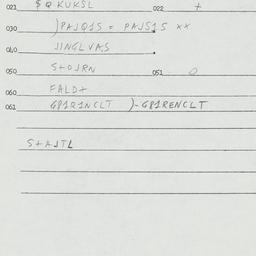 021 $ Q KUKSL 022 +
030 )PAJQ1S = PAJS15 ××
040 JINGLVAS
050 S+OJRN 051 O
060 FALD+
061 GP1R1NCLT )-GP1RENCLT
S+AJTL